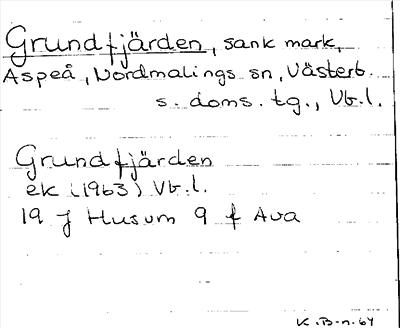 Grundfjärden, sank mark,
Aspeå, Nordmalings sn, Västerb.
s. doms. tg., Vb.l.
Grundfjärden
ek (1963) Vb.l.
19 J Husum 9 f Ava
K.B-n-64